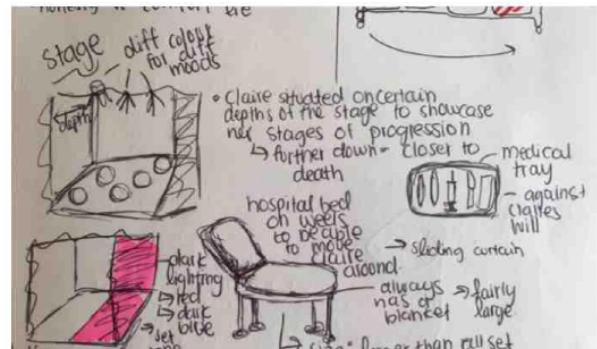 stage
diff colour
for diff
moods
depth
• Claire situated on certain
depths of the stage to showcase
her stages of progression
↳ further down = closer to
death
medical
tray
- against
Claires
will
hospital bed
on weels
to be able
to move
claire
around
→ sliding curtain
always
has a
blanket
→ fairly
large
dark
lighting
↳ red
↳ dark
blue
→ set
larger than
set